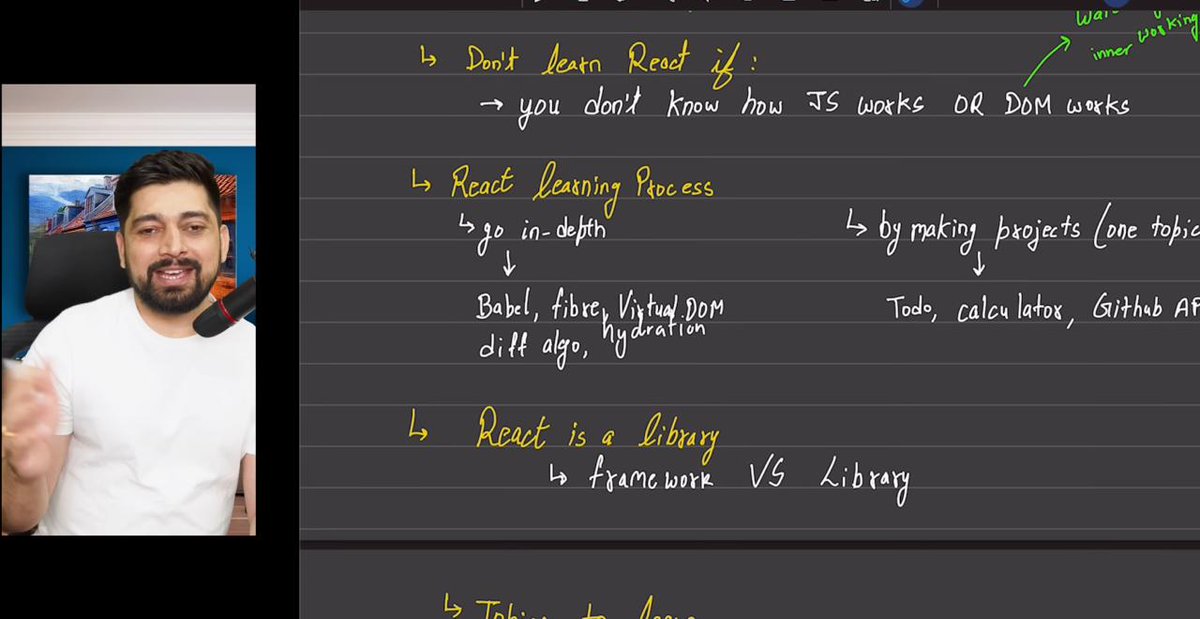 inner working
↳ Don't learn React if :
→ you don't know how JS works OR DOM works
↳ React learning Process
↳ go in-depth
↳ by making projects (one topic
Babel, fibre, Virtual DOM
Todo, calculator, Github AP
diff algo, hydration
↳ React is a library
↳ framework VS Library
to learn